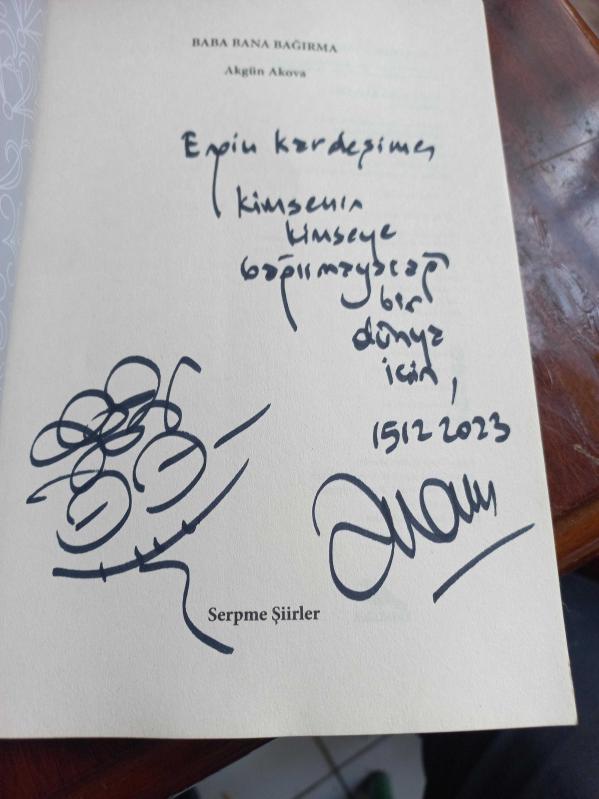 BABA BANA BAĞIRMA
Akgün Akova
kardeşime,
kimsenin
kimseye
bağırmayacağı
bir
dünya
için,
15122023
Serpme Şiirler